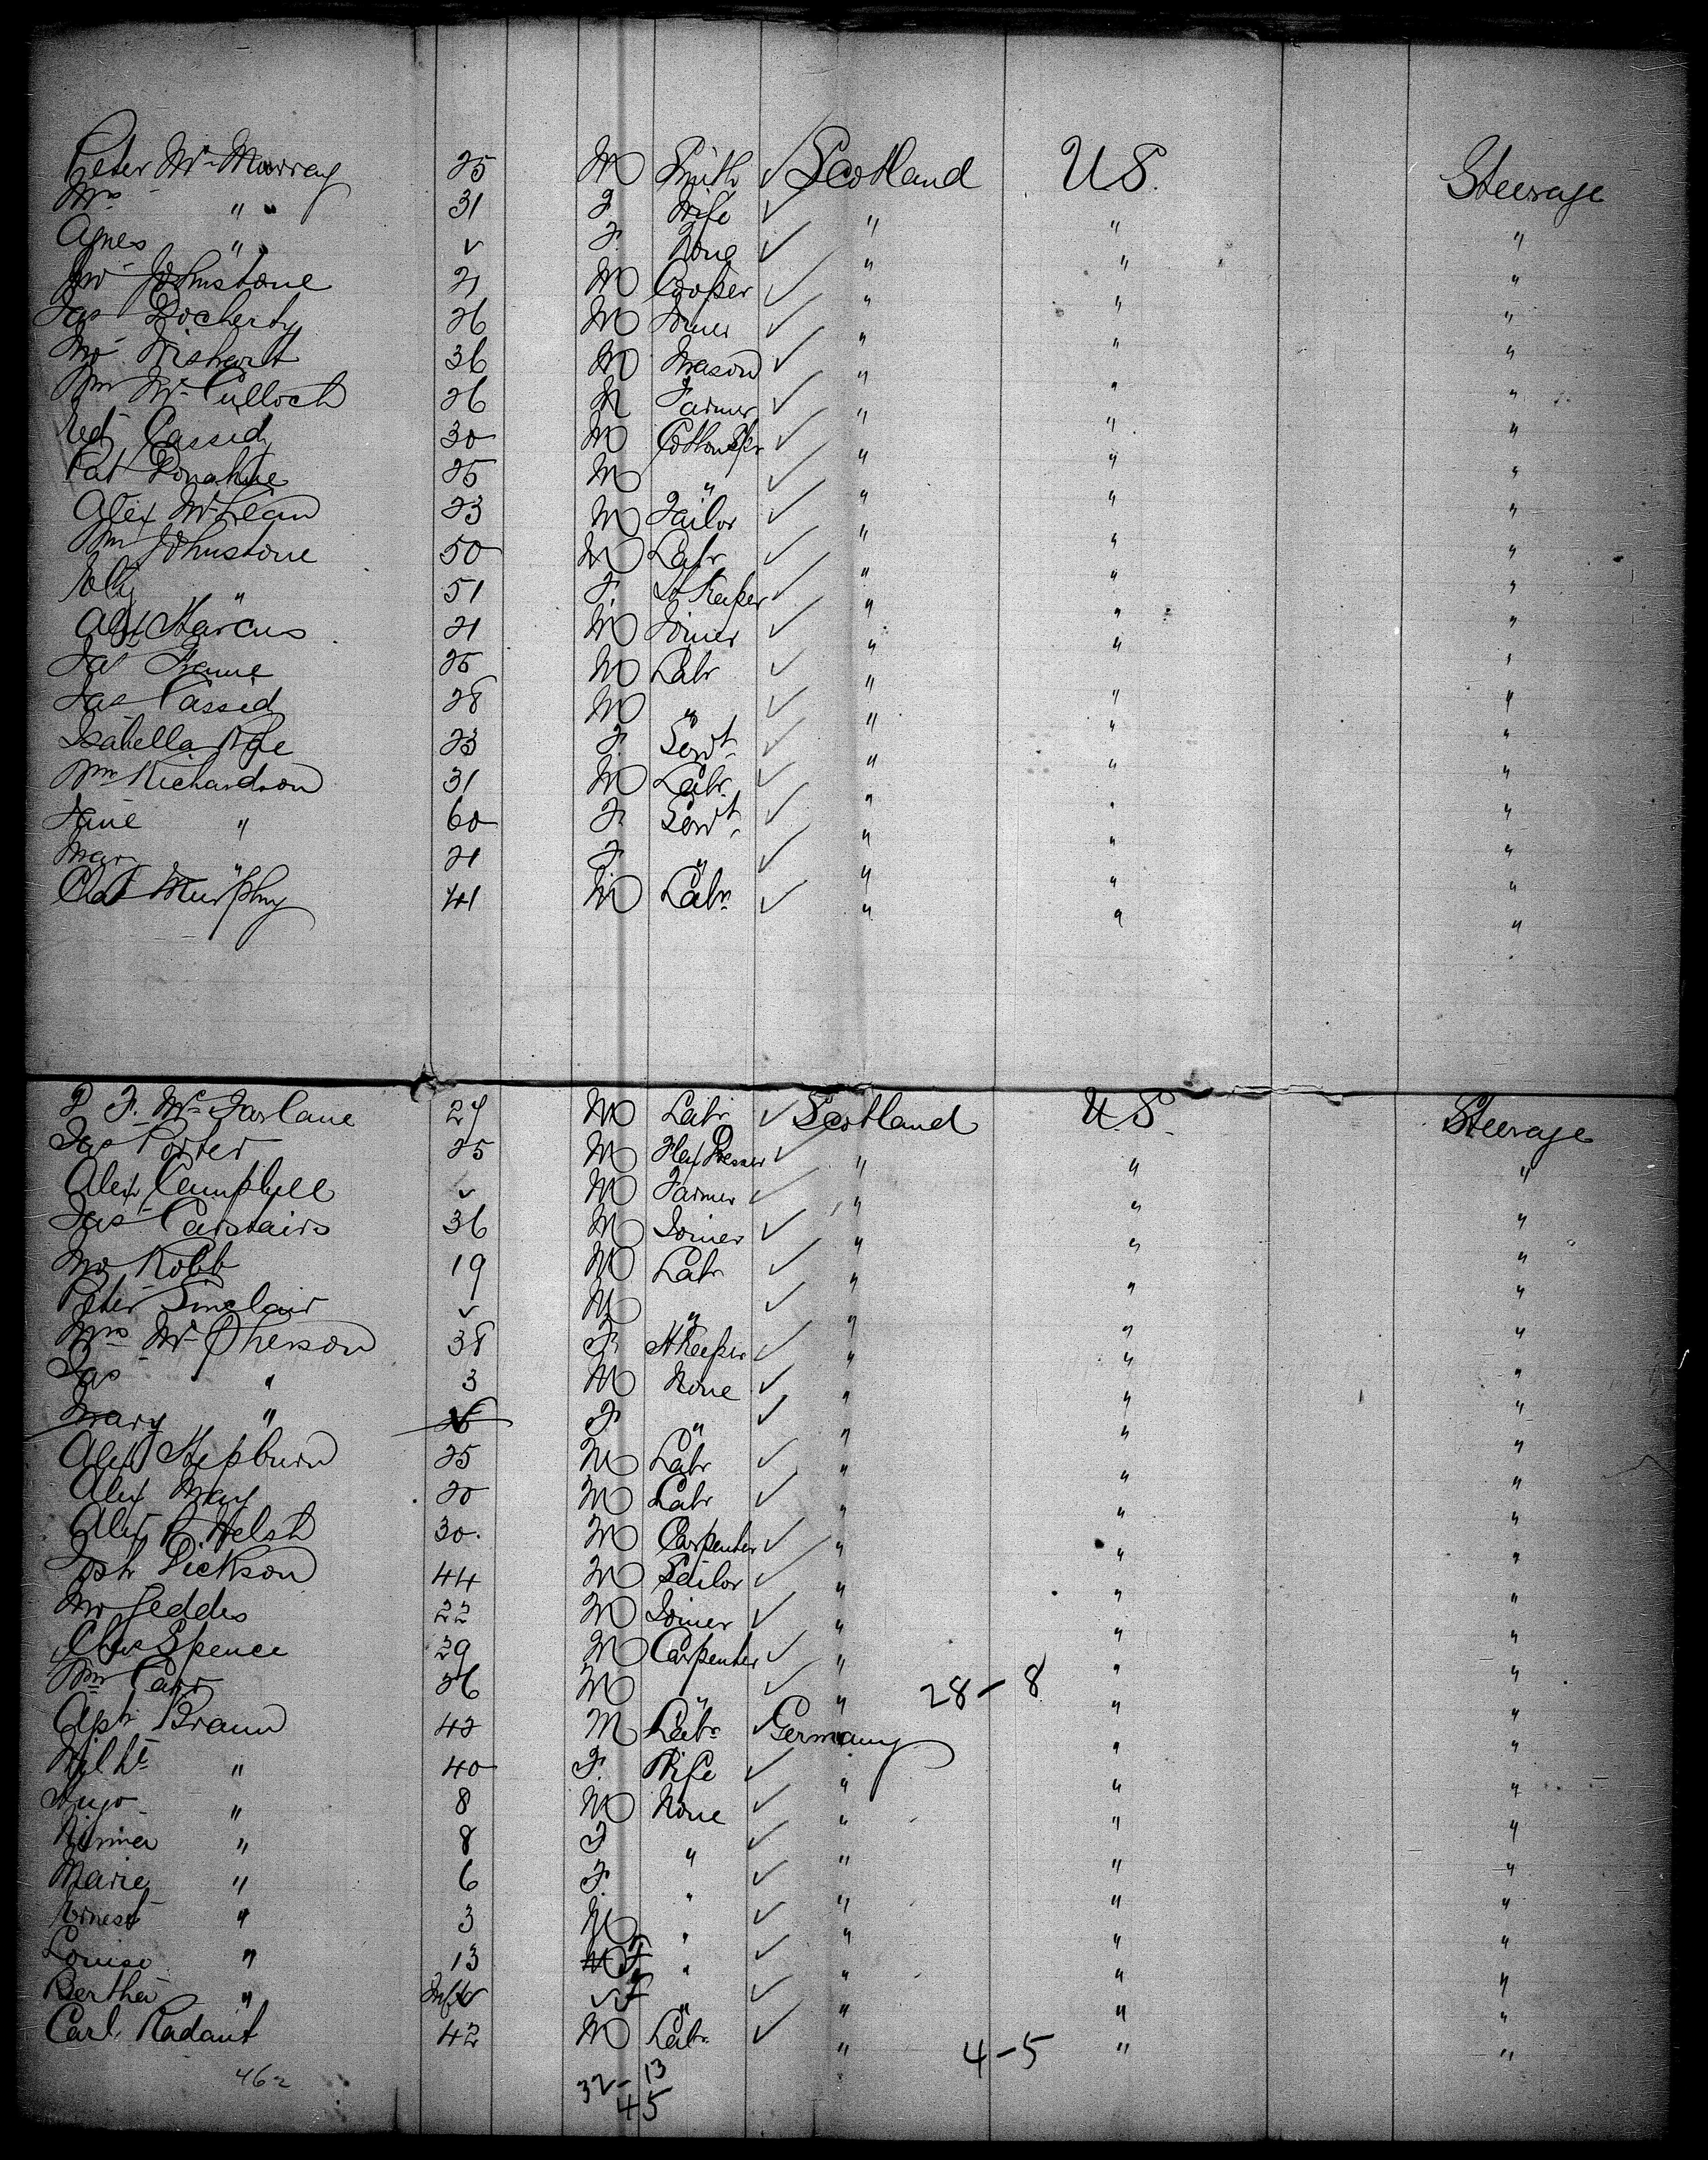 Peter McMurray 25 M Smith ✓ Scotland U S. Steerage
Mrs " 31 F Wife ✓ " " "
Agnes " ✓ F. None ✓ " " "
Jno Johnstone 21 M Cooper ✓ " " "
Jas Docherty 26 M Joiner ✓ " " "
Jno Wishart 36 M Mason ✓ " " "
Wm McCulloch 26 M Farmer ✓ " " "
Cassidy 30 M ✓ " " "
Pat Donahue 25 M " ✓ " " "
Alex McLean 23 M Tailor ✓ " " "
Wm Johnstone 50 M Labr ✓ " " "
" 51 F. Keeper ✓ " " "
Alex Marcus 21 M Joiner ✓ " " "
Jas 25 M Labr ✓ " " "
Jas Cassid 28 M " ✓ " " "
Isabella 23 F. Servt ✓ " " "
Wm Richardson 31 M Labr. ✓ " " "
Jane " 60 F. Servt ✓ " " "
Mary " 21 F " ✓ " " "
Chas Murphy 41 M Labr ✓ " " "
F. McFarlane 27 M Labr ✓ Scotland U S. Steerage
Jas Porter 25 M ✓ " " "
Alex Campbell ✓ M Farmer ✓ " " "
Jas Carstairs 36 M Joiner ✓ " " "
Jno Robb 19 M Labr ✓ " " "
Peter Sinclair ✓ M " ✓ " " "
Mrs McPherson 38 F. HKeeper ✓ " " "
Jas " 3 M None ✓ " " "
Mary " F " ✓ " " "
Alex Hepburn 25 M Labr ✓ " " "
Alex May 20 M Labr ✓ " " "
Alex Welsh 30. M Carpenter ✓ " " "
Josh Dickson 44 M Sailor ✓ " " "
Jno Geddes 22 M Joiner ✓ " " "
Chas Spence 29 M Carpenter ✓ " " "
Wm Carr 26 M " ✓ " 28-8 " "
Braun 42 M Labr ✓ Germany " "
Wilhe " 40 F. Wife ✓ " " "
Hugo " 8 M None ✓ " " "
" 8 F " ✓ " " "
Marie " 6 F. " ✓ " " "
Ernest " 3 M " ✓ " " "
Louise " 13 F " ✓ " " "
Bertha " Inft F " ✓ " " "
Carl Radant 42 M Labr ✓ " 4-5 " "
46 32-13
45